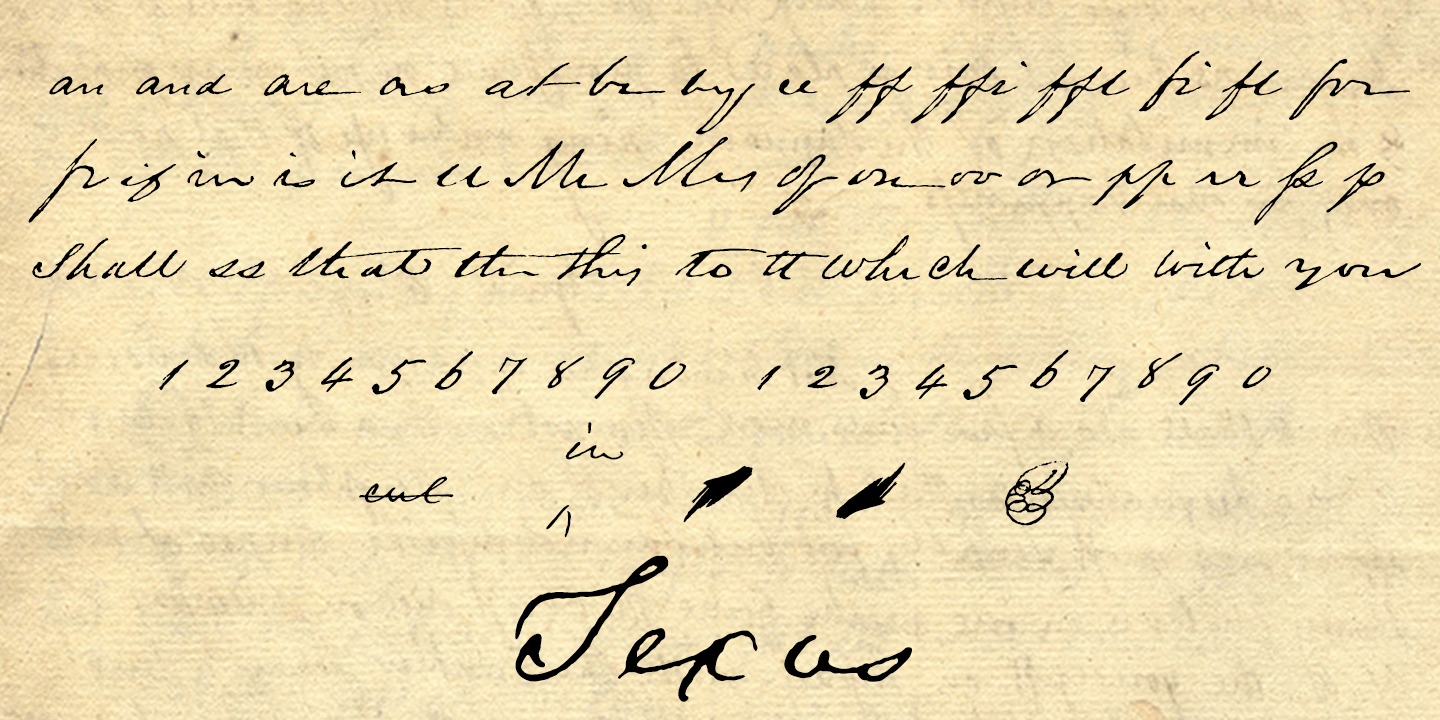 an and are as at be by ee ff ffi ffl fi fl for
fr if in is it ll Mr Mrs of on oo or pp rr ß p
Shall ss that the this to tt which will with you
1 2 3 4 5 6 7 8 9 0 1 2 3 4 5 6 7 8 9 0
in
cut ^
Texas